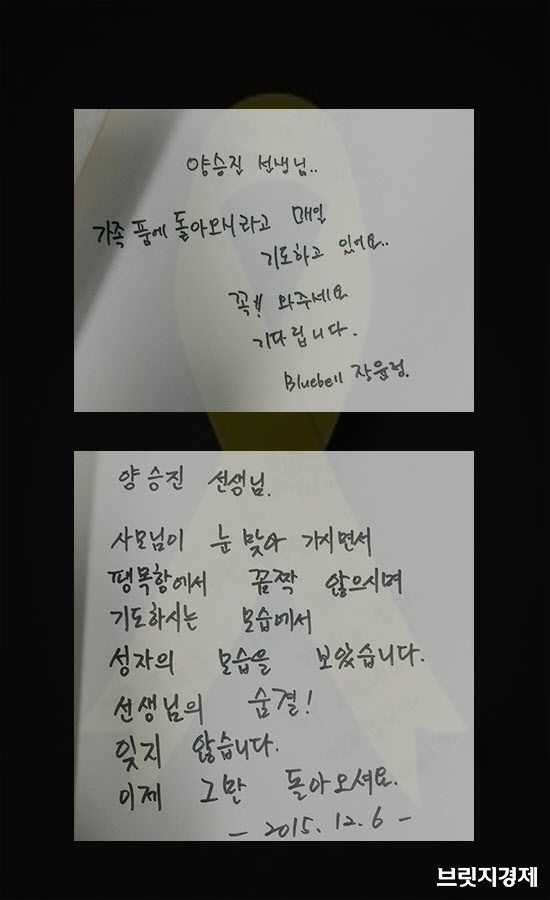 양승진 선생님..
가족 품에 돌아오시라고 매일
기도하고 있어요..
꼭!! 와주세요
기다립니다.
Bluebell 장윤정.
양승진 선생님.
사모님이 눈 맞아 가시면서
팽목항에서 꼼짝 않으시며
기도하시는 모습에서
성자의 모습을 보았습니다.
선생님의 숨결!
잊지 않습니다.
이제 그만 돌아오셔요.
- 2015. 12. 6 -
브릿지경제